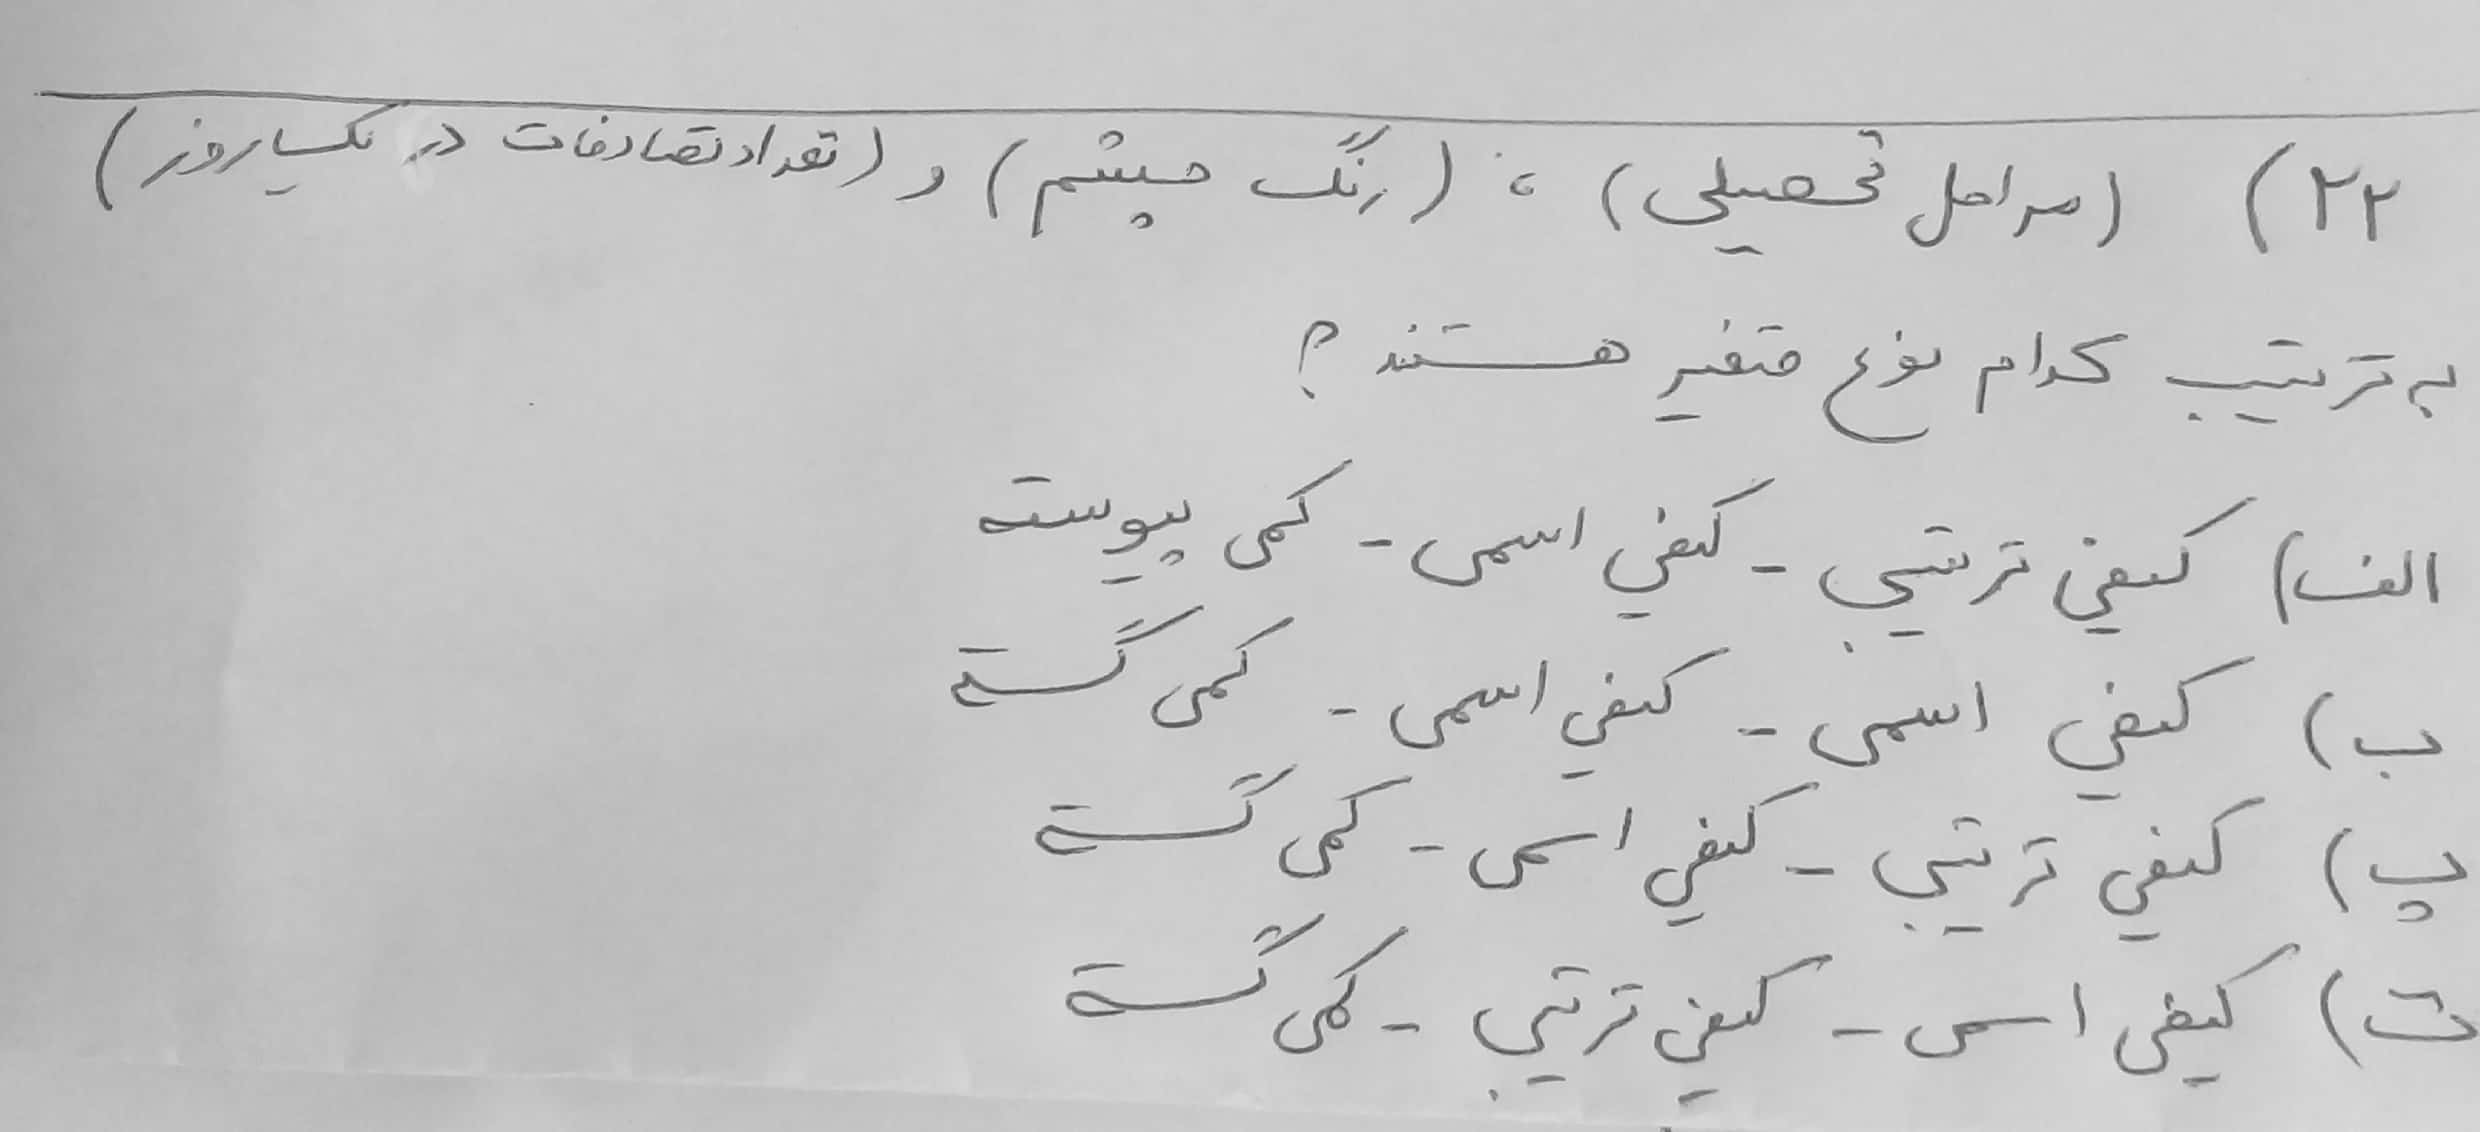 ۲۲) (مراحل تحصیلی) ، (رنگ چشم) و (تعداد تصادفات در یک روز)
به ترتیب کدام نوع متغیر هستند ؟
الف) کیفی ترتیبی - کیفی اسمی - کمی پیوسته
ب) کیفی اسمی - کیفی اسمی - کمی گسسته
پ) کیفی ترتیبی - کیفی اسمی - کمی گسسته
ت) کیفی اسمی - کیفی ترتیبی - کمی گسسته